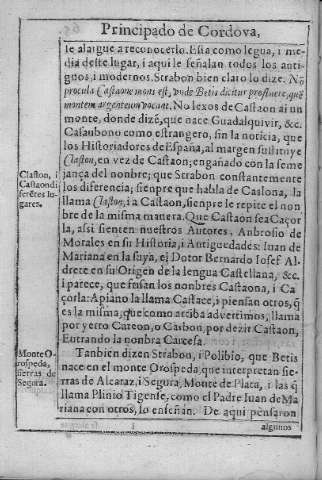 Principado de Cordova,
le alaigue a reconocerlo. Esta como legua, i me-
dia deste lugar, i aqui le señalan todos los anti-
guos, i modernos. Strabon bien claro lo dize. No
procul a Castaone mons est, vnde Betis dicitur profluere, què
montem argenteum vocant. No lexos de Castaon ai un
monte, donde dizè, que nace Guadalquivir, &c.
Casaubono como estrangero, sin la noticia, que
los Historiadores de España, al margen sustituye
Claston, en vez de Castaon; engañado con la seme
jança del nonbre; que Strabon constantemente
los diferencia; sienpre que habla de Caslona, la
llama Claston, i a Castaon, sienpre le repite el non
bre de la misma manera. Que Castaon sea Caçor
la, assi sienten nuestros Autores. Anbrosio de
Morales en su Historia, i Antiguedades: Iuan de
Mariana en la suya, el Dotor Bernardo Iosef Al-
drete en su Origen de la lengua Castellana, &c.
i parece, que frisan los nonbres Castaona, i Ca
çorla. Apiano la llama Castace, i piensan otros, q̃
es la misma; que como arriba advertimos, llama
por yerro Careon, o Casbon, por dezir Castaon,
Eutrando la nonbra Carcesa.
Tanbien dizen Strabon, i Polibio, que Betis
nace en el monte Orospeda, que interpretan sie-
rras de Alcaraz, i Segura, Monte de Plata, i las q̃
llama Plinio Tigense, como el Padre Iuan de Ma
riana con otros, lo enseñan. De aqui pensaron
algunos
Claston, i
Castaon di
ferẽtes lu-
gares.
Monte O-
rospeda,
sierras de
Segura.